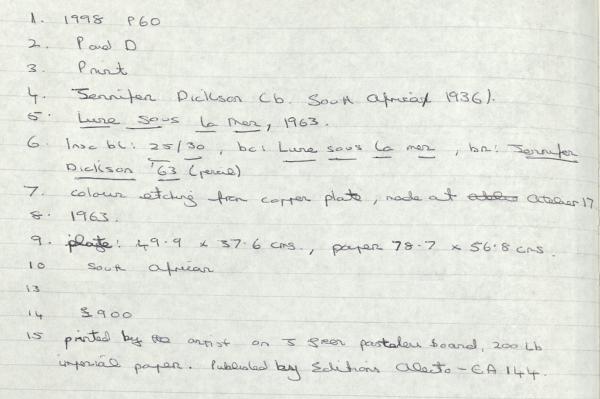 1. 1998 P60
2. P and D
3. Print
4. Jennifer Dickson (b. South Africa, 1936).
5. Lune sous la mer, 1963.
6 Insc bl: 25/30, bc: Lune sous la mer, br: Jennifer
Dickson '63 (pencil)
7. colour etching from copper plate, made at Atelier 17
8. 1963.
9. plate: 49.9 x 37.6 cms., paper 78.7 x 56.8 cms.
10 South African
13
14 £900
15 printed by the artist on J Green board, 200 Lb
imperial paper. Published by Editions Alecto - EA 144.